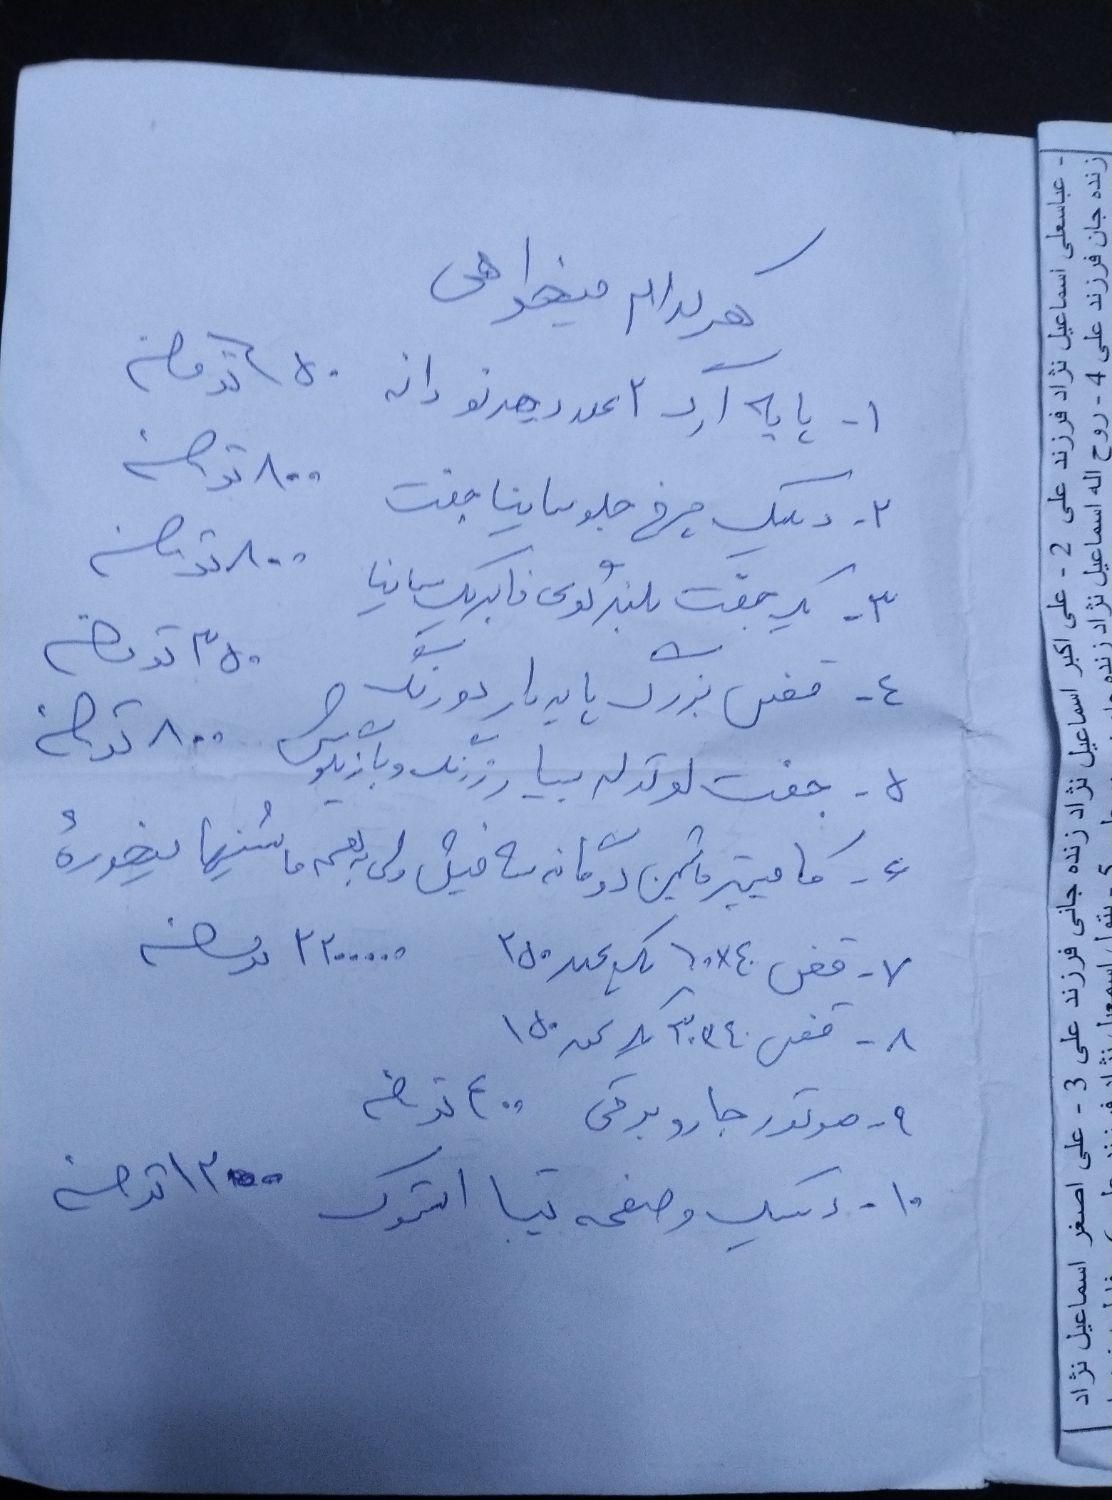 هر کدام میخواهی
۱- پایه آرک ۲ عدد هر دو دانه ۶۵۰ تومنه
۲- دیسک چرخ جلو ساینا جفت ۸۰۰ تومنه
۳- یک جفت بلندگوی فابریک ساینا ۸۰۰ تومنه
۴- قفس بزرگ پایه دار دو رنگ ۳۵۰ تومنه
۵- جفت لوتوله سیار ۸۰۰ تومنه
۶- کامپیوتر ماشین دوگانه فیش ولی بهمه ماشینها میخوره
۷- قفس ۶۰×۴۰ یک عدد ۲۵۰ ۲۲۰۰۰۰۰ تومنه
۸- قفس ۳۰×۴۰ یک عدد ۱۵۰
۹- موتور جارو برقی ۴۰۰ تومنه
۱۰- دیسک و صفحه تیبا استوک ۱۲۰۰ تومنه
- عباسعلی اسماعیل نژاد فرزند علی 2 - علی اکبر اسماعیل نژاد زنده جانی فرزند علی 3 - علی اصغر اسماعیل نژاد
زنده جان فرزند علی 4 - روح اله اسماعیل نژاد